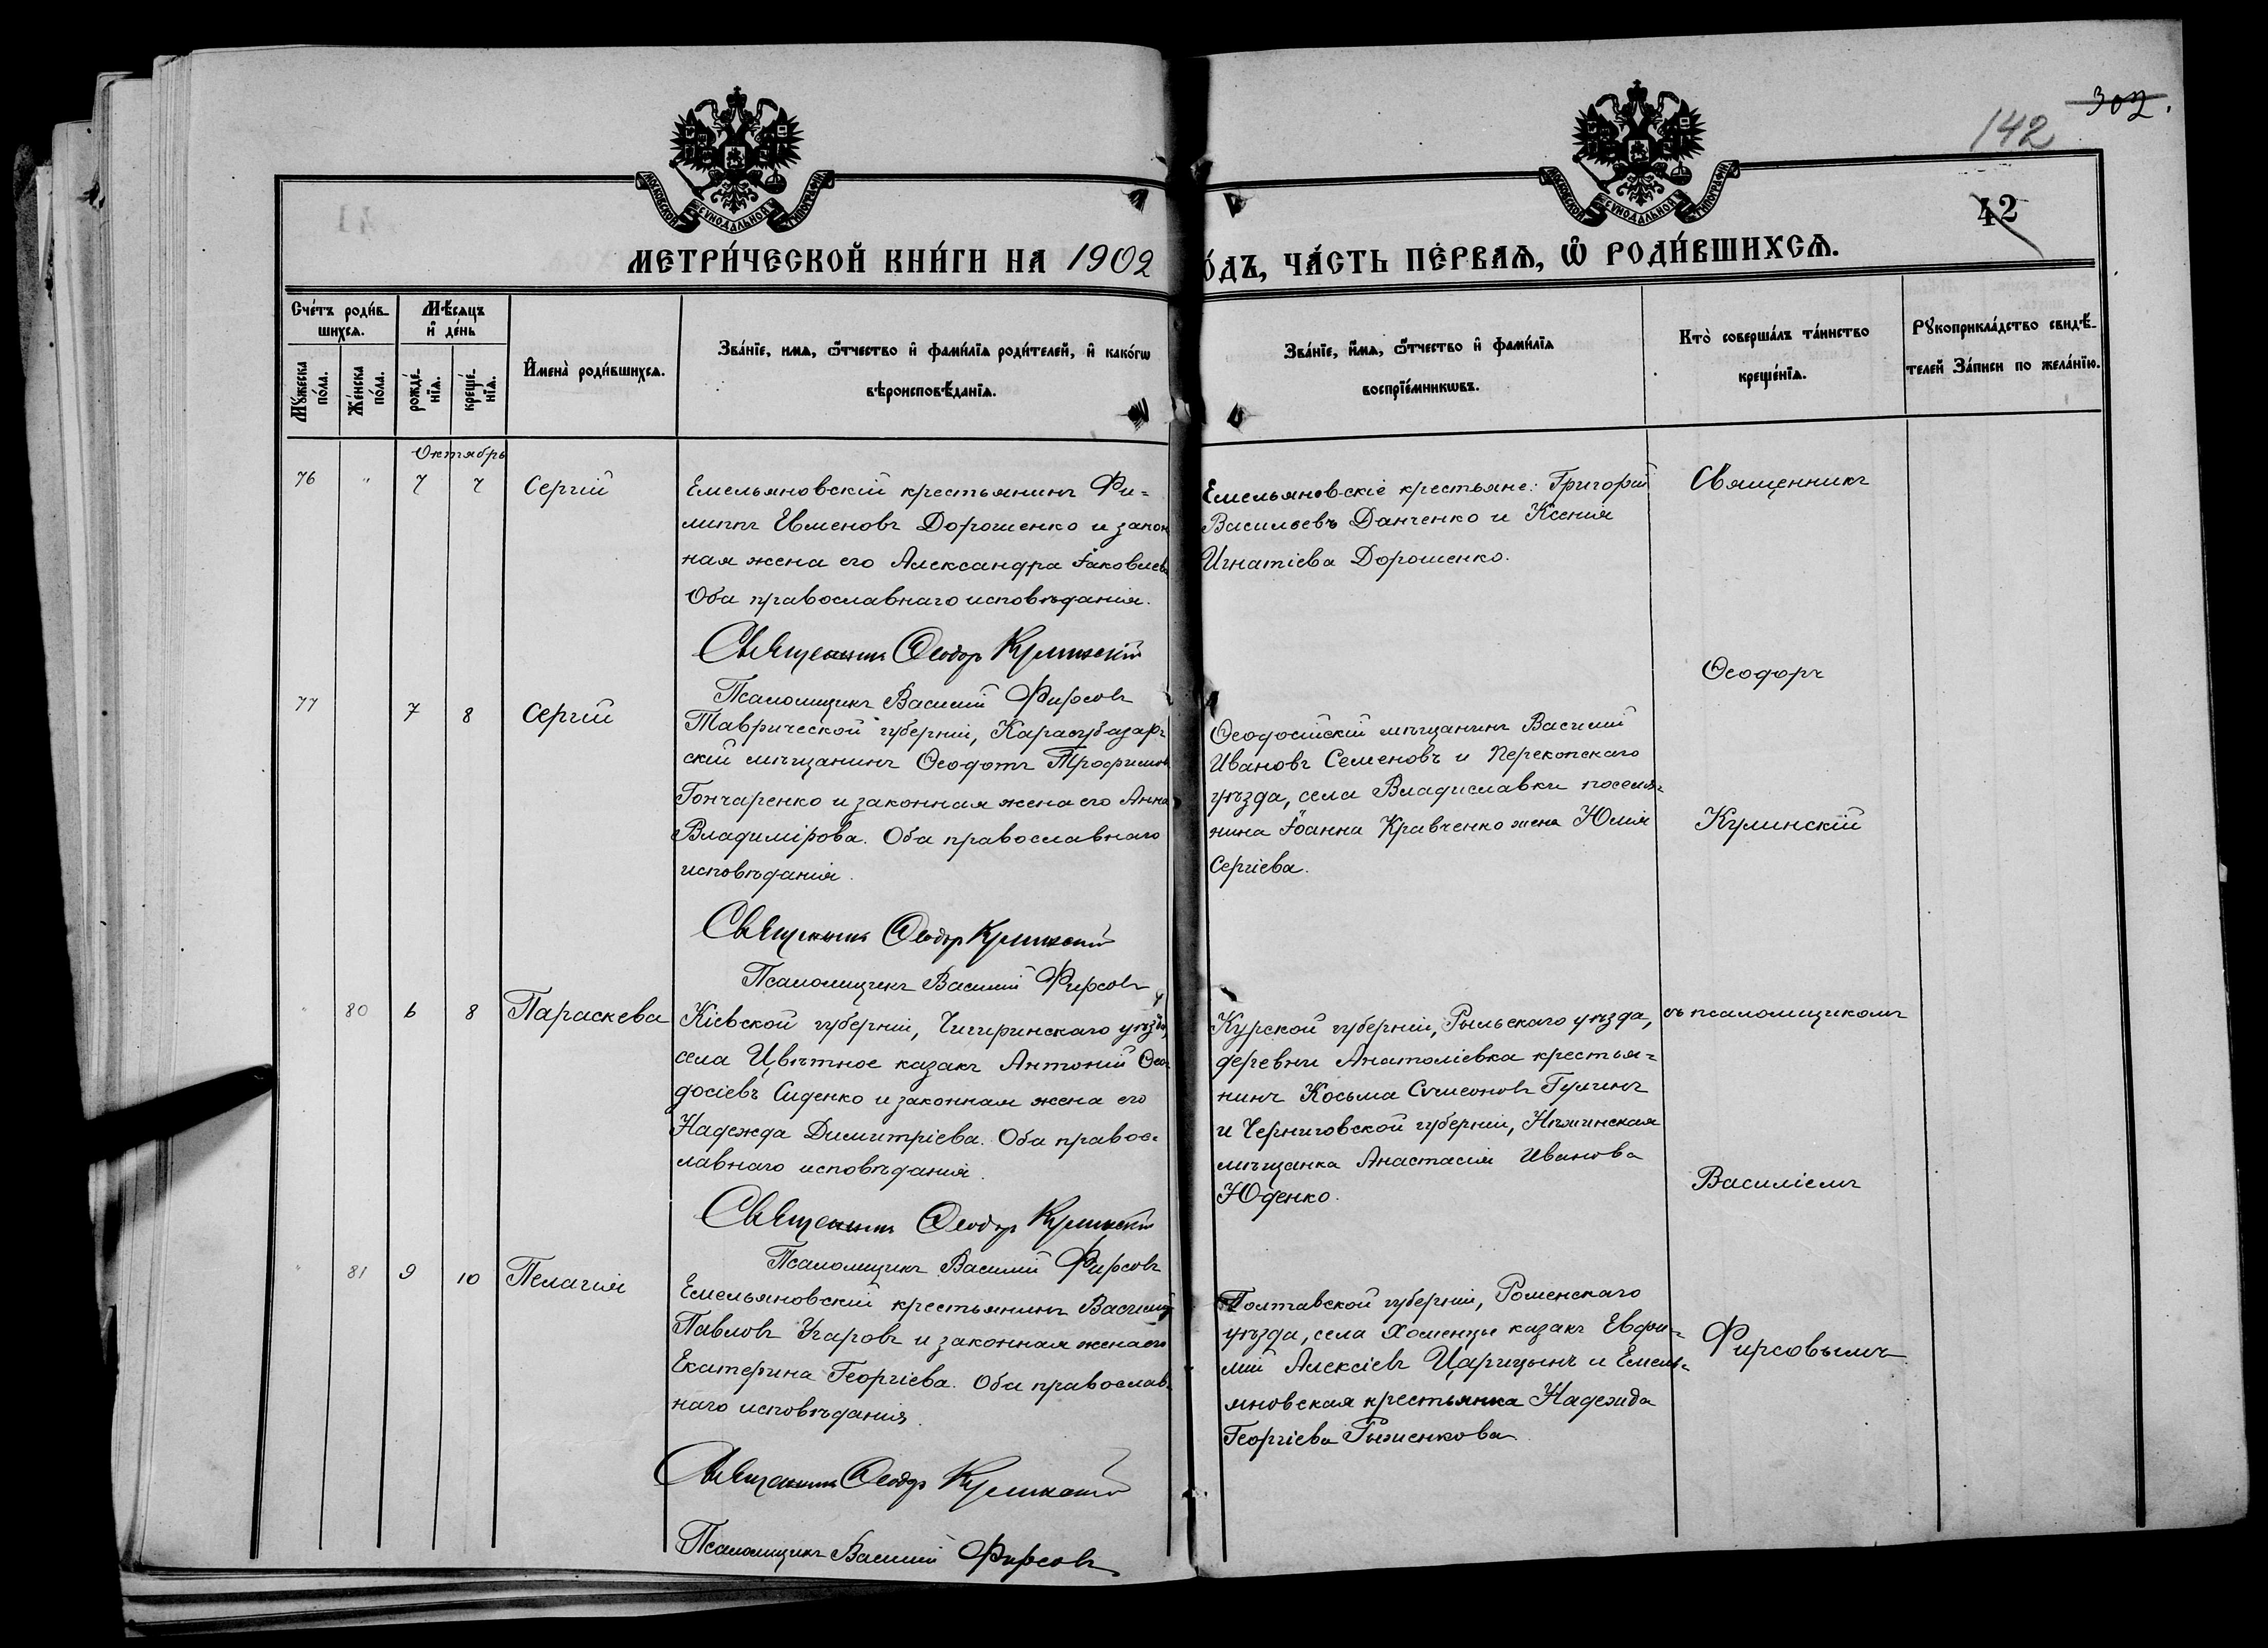 302.
142
42
МОСКОВСКОЙ СѴНОДАЛЬНОЙ ТИПОГРАФІИ
МОСКОВСКОЙ СѴНОДАЛЬНОЙ ТИПОГРАФІИ
МЕТРИ́ЧЕСКОЙ КНИ́ГИ НА 1902
О́ДЪ, ЧА́СТЬ ПЕ́РВАѦ, Ѿ РОДИ́ВШИХСѦ.
Сче́тъ роди́в-
шихсѧ.
Мꙋ́жеска
по́ла.
Же́нска
по́ла.
Мѣ́сѧцъ
и҆ де́нь
рожде́-
нїѧ.
креще́-
нїѧ.
И҆мена̀ роди́вшихсѧ.
Зва́нїе, имѧ, ѻ҆́тчество и҆ фами́лїѧ роди́телей, и҆ како́гѡ
вѣроисповѣ́данїѧ.
Зва́нїе, и҆́мѧ, ѻ҆́тчество и҆ фами́лїѧ
воспрїе́мникѡвъ.
Кто̀ соверша́лъ та́инство
креще́нїѧ.
Рꙋкоприкла́дство свидѣ́-
телей За́писи по жела́нїю.
Октябрь
76 " 7 7 Сергій
Емельяновскій крестьянинъ Фи=
липпъ Евменовъ Дорошенко и закон
ная жена его Александра Іаковлева
Оба православнаго исповѣданія.
Священникъ Ѳеодоръ Кулинскій
Псаломщикъ Василій Фирсовъ
Емельяновскіе крестьяне: Григорій
Васильевъ Данченко и Ксенія
Игнатіева Дорошенко.
Священникъ
Ѳеодоръ
77 7 8 Сергій
Таврической губерніи, Карасубазар=
скій мѣщанинъ Ѳеодотъ Трофимовъ
Гончаренко и законная жена его Анна
Владимірова. Оба православнаго
исповѣданія.
Священникъ Ѳеодоръ Кулинскій
Псаломщикъ Василій Фирсовъ
Ѳеодосійскій мѣщанинъ Василій
Ивановъ Семеновъ и Перекопскаго
уѣзда, села Владиславки поселя=
нина Іоанна Кравченко жена Юлія
Сергіева.
Кулинскій
" 80 6 8 Параскева
Кіевской губерніи, Чигиринскаго уѣзда,
села Цвѣтное казакъ Антоній Ѳео=
досіевъ Сиденко и законная жена его
Надежда Димитріева. Оба правос=
лавнаго исповѣданія.
Священникъ Ѳеодоръ Кулинскій
Псаломщикъ Василій Фирсовъ
Курской губерніи, Рыльскаго уѣзда,
деревни Анатоліевка крестья=
нинъ Косьма Сѵмеоновъ Гулинъ
и Черниговской губерніи, Нѣжинская
мѣщанка Анастасія Иванова
Юденко.
съ псаломщикомъ
Василіемъ
" 81 9 10 Пелагія
Емельяновскій крестьянинъ Василій
Павловъ Угаровъ и законная жена его
Екатерина Георгіева. Оба православ=
наго исповѣданія.
Священникъ Ѳеодоръ Кулинскій
Псаломщикъ Василій Фирсовъ
Полтавской губерніи, Роменскаго
уѣзда, села Хоменцы казакъ Евфи=
мій Алексіевъ Царицынъ и Емель=
яновская крестьянка Надежда
Георгіева Рыженкова.
Фирсовымъ